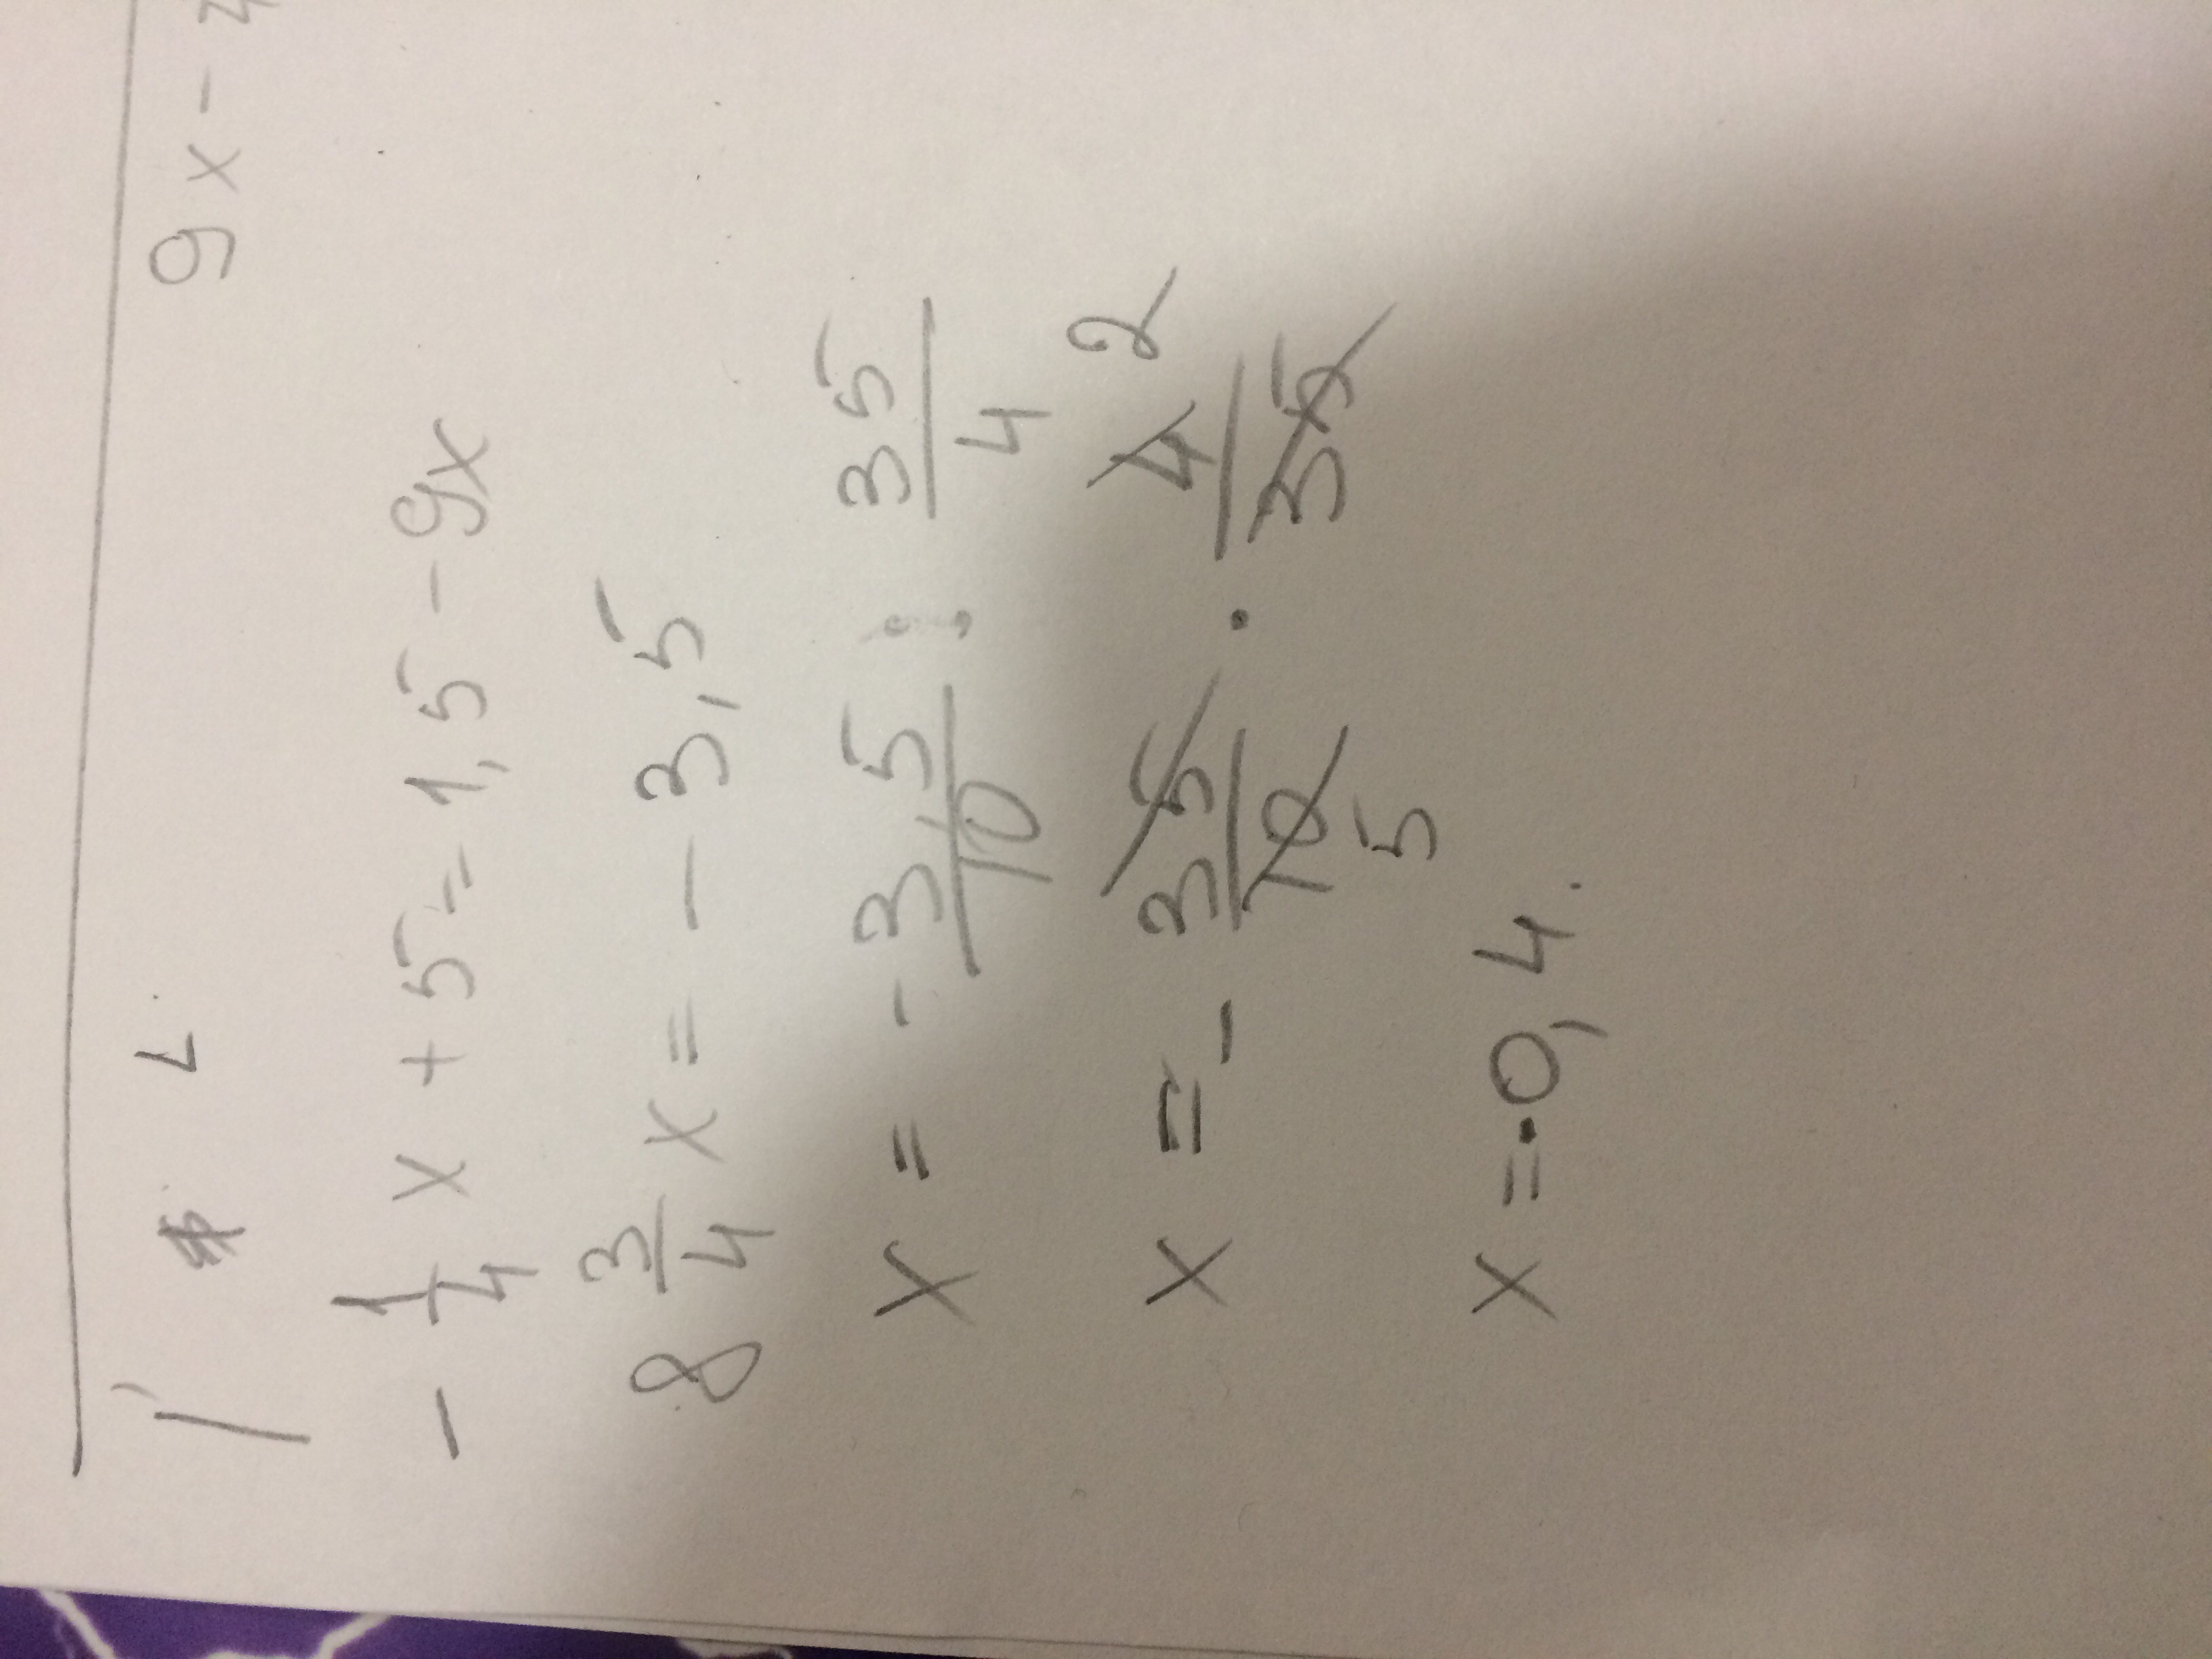 9x -
-1/4 x + 5 = 1,5 - 9x
8 3/4 x = - 3,5
x = - 3,5/10 : 35/4
x = - 35/10 · 4/35 2 5
x = -0,4.